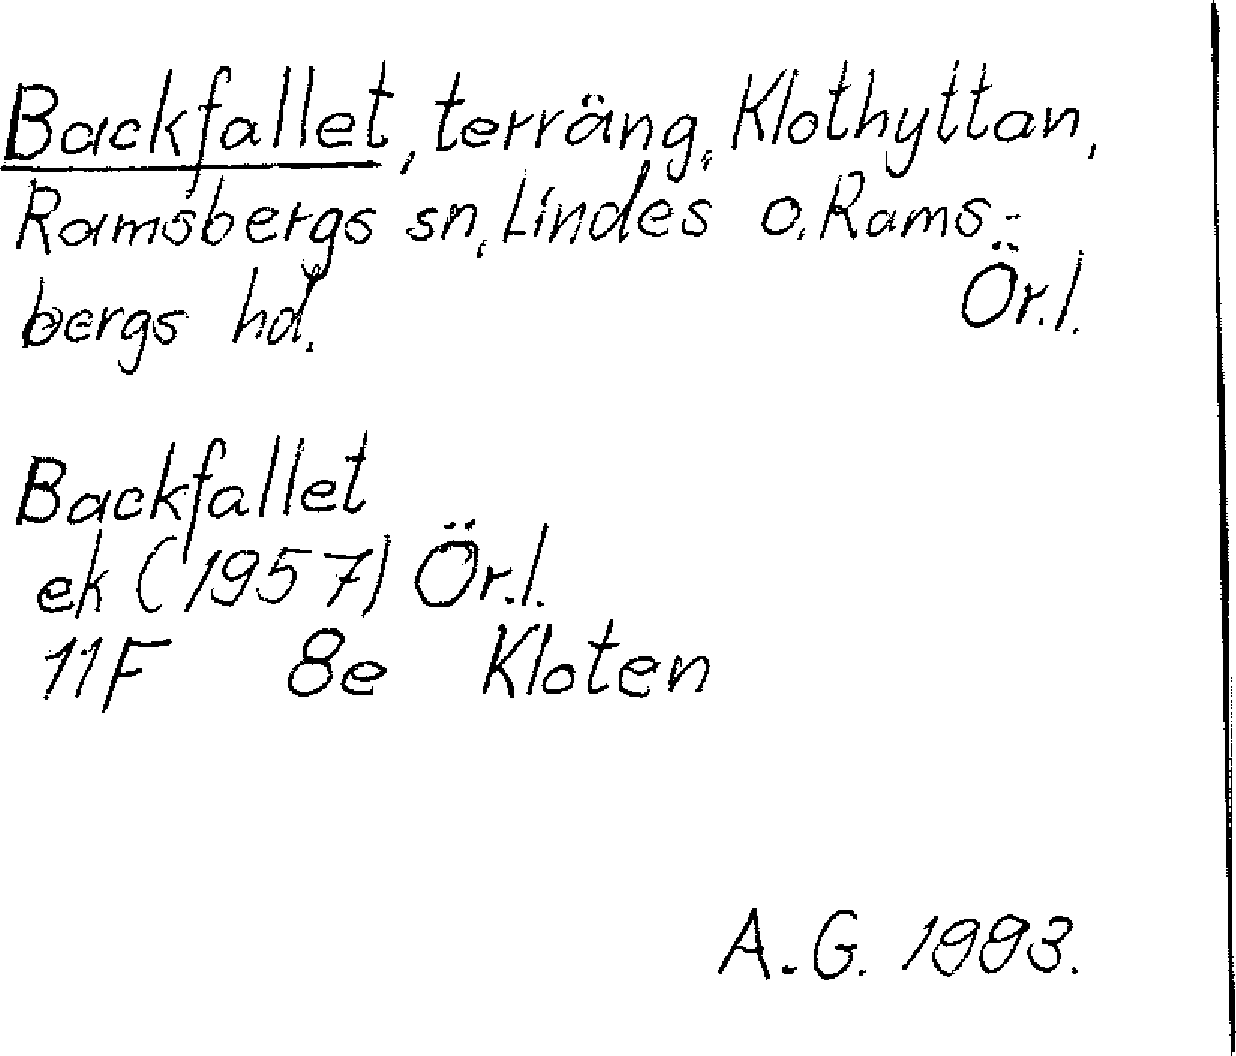 Backfallet, terräng, Klothyttan,
Ramsbergs sn, Lindes o. Rams-
bergs hd. Ör.l.
Backfallet
ek (1957) Ör.l.
11F 8e Kloten
A.G. 1993.